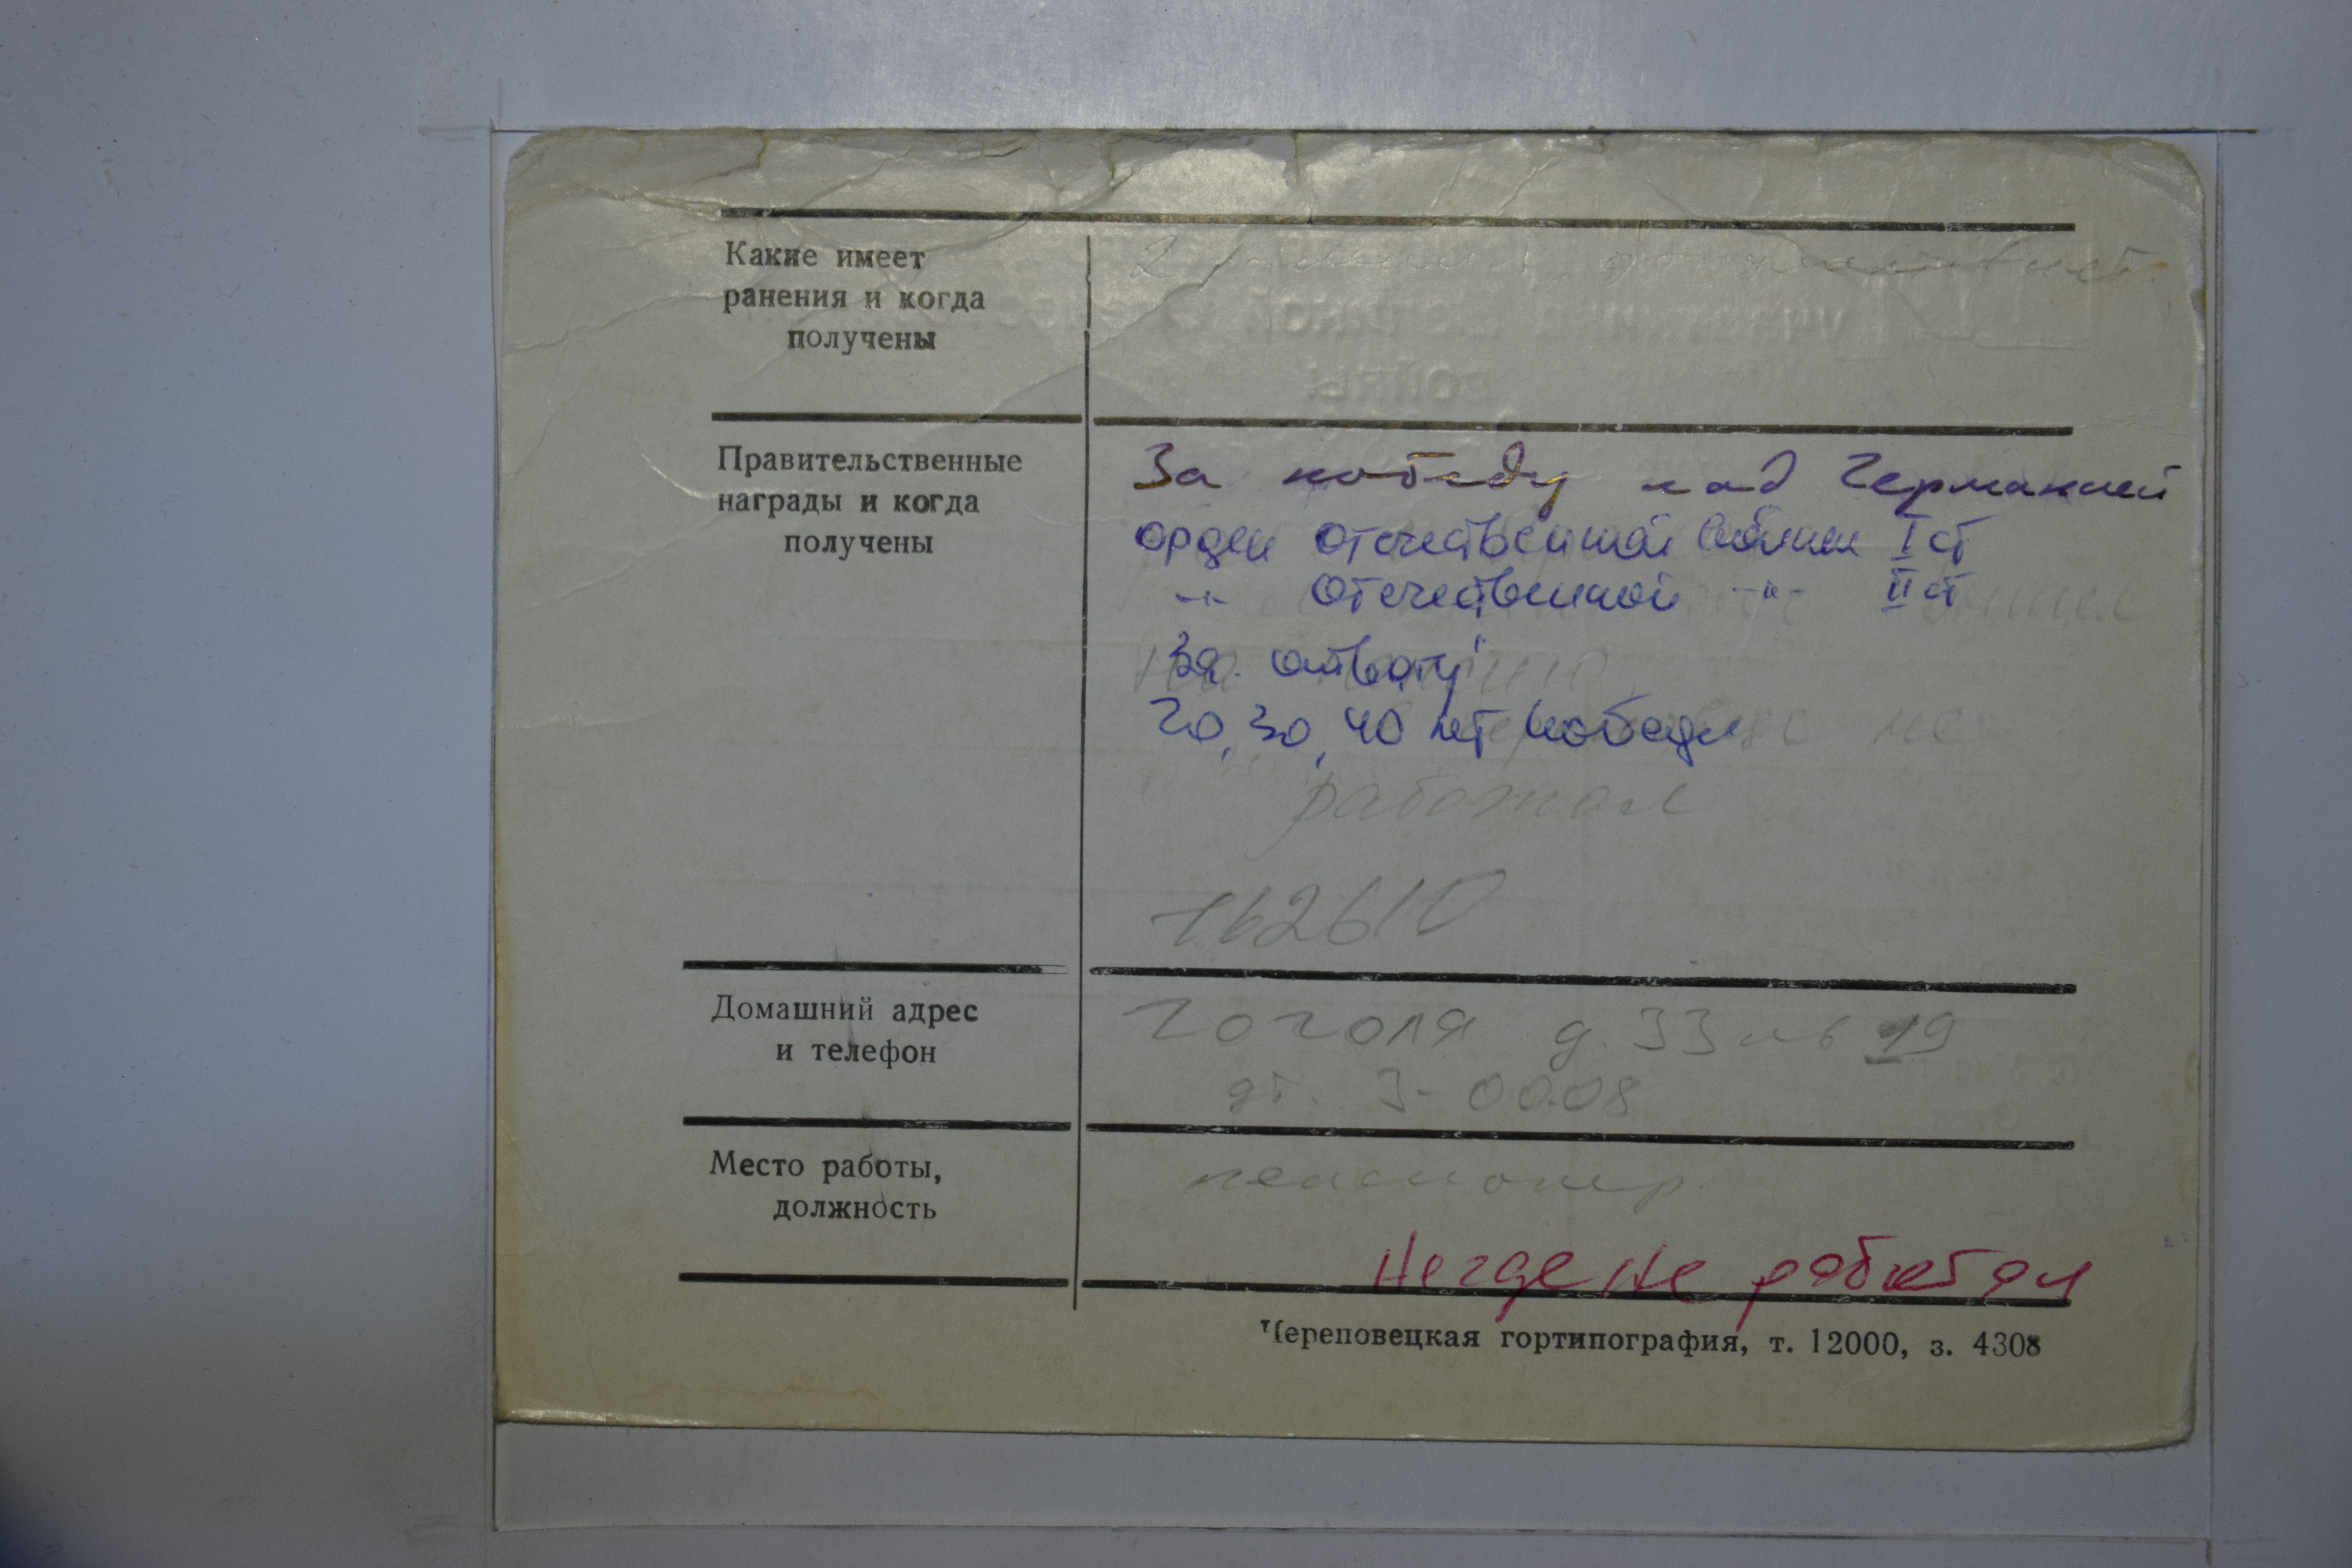 Какие имеет
ранения и когда
получены
2 ранения, документов нет.
Правительственные
награды и когда
получены
За победу над Германией
орден отечественной войны I ст
-"- Отечественной -"- II ст
За отвагу
20, 30, 40 лет победы
не
работал
162610
Домашний адрес
и телефон
Гоголя д. 33 кв 19
дт. 3-00.08
Место работы,
должность
пенсионер.
Негде не работал
Череповецкая гортипография, т. 12000, з. 4308